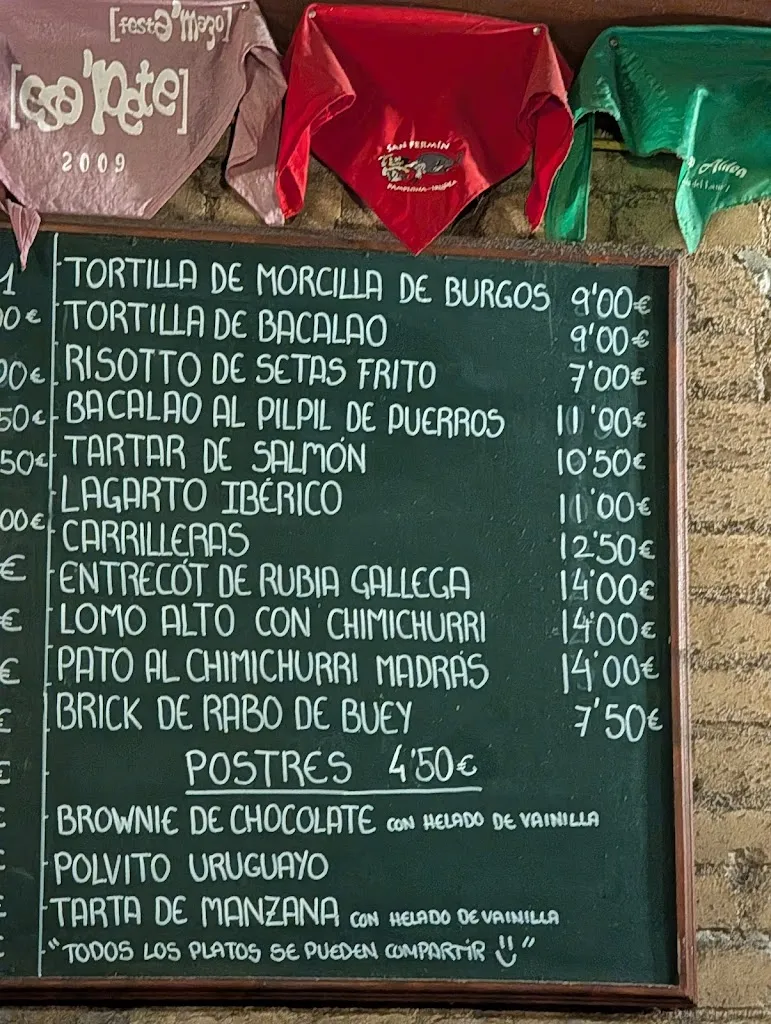 [festa'mazo]
[esa'Pete]
2009
SAN FERMÍN
PAMPLONA-IRUÑEA
Aldea
TORTILLA DE MORCILLA DE BURGOS 9'00€
TORTILLA DE BACALAO 9'00€
RISOTTO DE SETAS FRITO 7'00€
BACALAO AL PILPIL DE PUERROS 11'00€
TARTAR DE SALMÓN 10'50€
LAGARTO IBÉRICO 11'00€
CARRILLERAS 12'50€
ENTRECÓT DE RUBIA GALLEGA 14'00€
LOMO ALTO CON CHIMICHURRI 14'00€
PATO AL CHIMICHURRI MADRÁS 14'00€
BRICK DE RABO DE BUEY 7'50€
POSTRES 4'50€
BROWNIE DE CHOCOLATE CON HELADO DE VAINILLA
POLVITO URUGUAYO
TARTA DE MANZANA CON HELADO DE VAINILLA
"TODOS LOS PLATOS SE PUEDEN COMPARTIR"